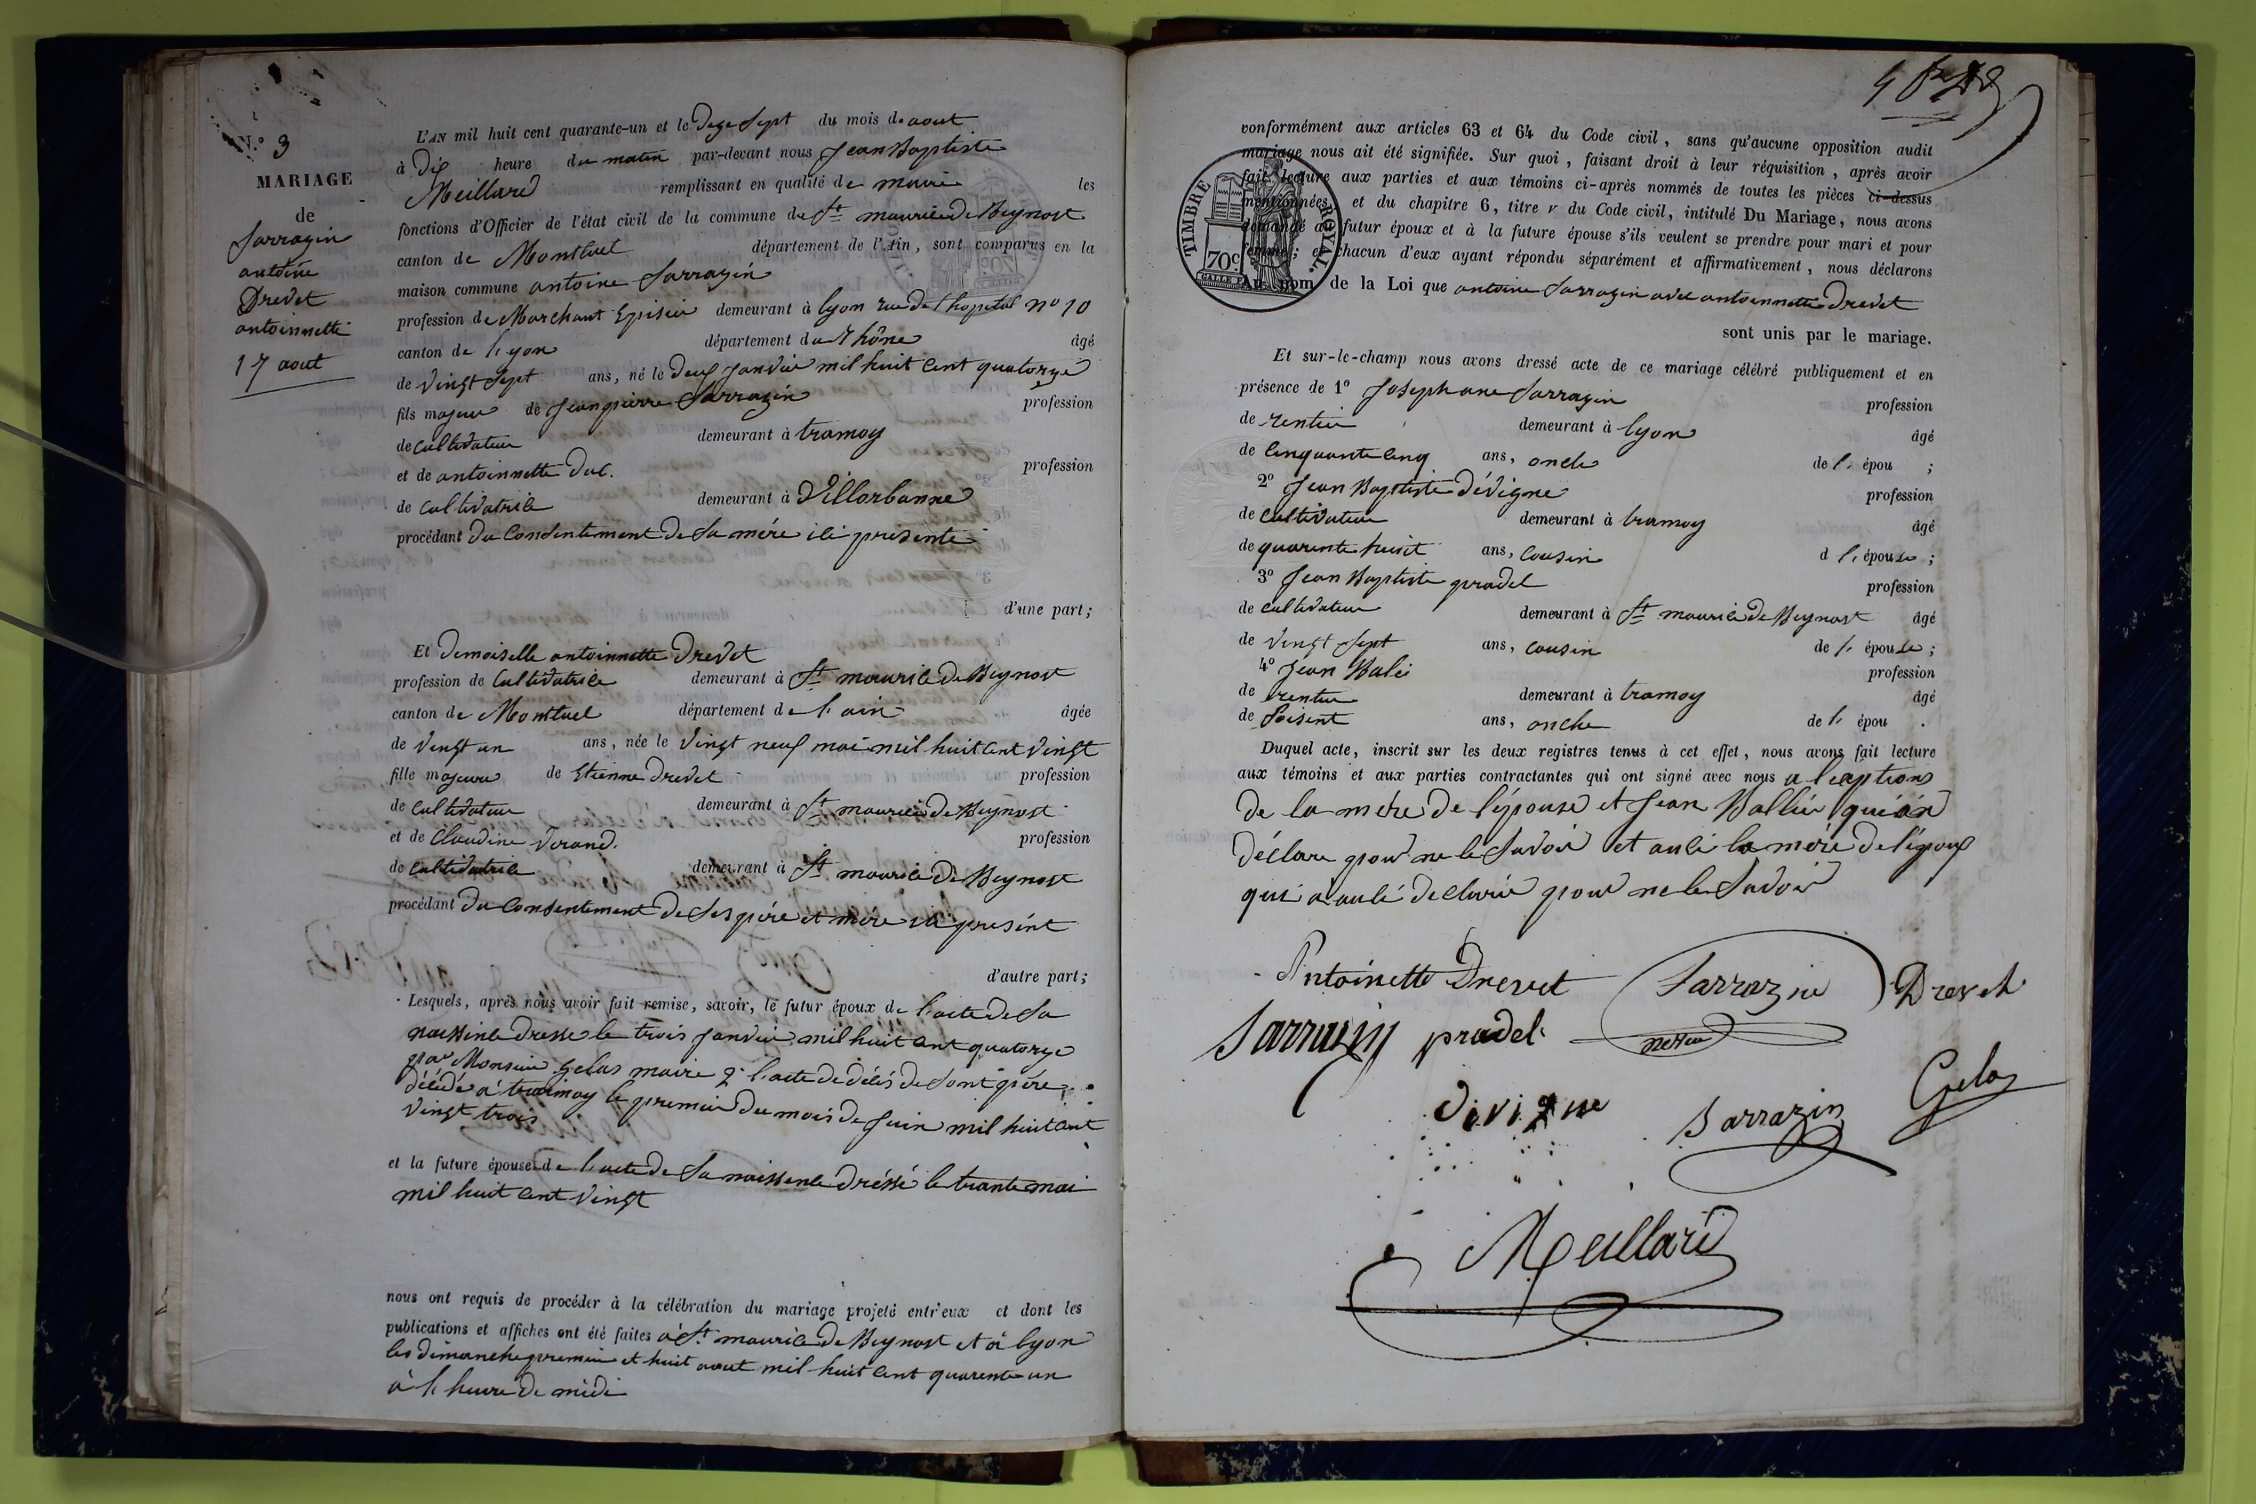 N.° 3
MARIAGE
de
Sarrazin
antoine
Drevet
antoinnette
17 aout
L'AN mil huit cent quarante-un et le dize sept du mois de aout
à dix heure du matin par-devant nous Jean Baptiste
Meillard remplissant en qualité de maire les
fonctions d'Officier de l'état civil de la commune de St maurice de Beynost
canton de Montluel département de l'Ain, sont comparus en la
maison commune antoine Sarrazin
profession de Marchant Episier demeurant à lyon rue de l'hopital no 10
canton de lyon département du Rhône âgé
de vingt sept ans, né le deux janvier mil huit cent quatorze
fils majeur de Jean pierre Sarrazin profession
de cultivateur demeurant à tramoy
et de antoinnette Duc. profession
de cultivatrice demeurant à Villorbanne
procédant du consentement de sa mére ici presente
d'une part;
Et demoiselle antoinnette Drevet
profession de cultivatrice demeurant à St maurice de Beynost
canton de Montluel département de l'ain âgée
de vingt un ans, née le vingt neuf mai mil huit cent vingt
fille majeure de Etienne Drevet profession
de cultivateur demeurant à St maurice de Beynost
et de Claudine Verand. profession
de cultivatrice demeurant à St maurice de Beynost
procédant du consentement de ses pére et mere ici present
d'autre part;
Lesquels, après nous avoir fait remise, savoir, le futur époux de l'acte de sa
naissence dresse le trois janvier mil huit cent quatorze
par Monsieur Gelas maire 2° l'acte de décés de sont pére
décédé a tramoy le premier du mois de Juin mil huit cent
vingt trois
et la future épouse de l'acte de sa naissence dréssé le trante mai
mil huit cent vingt
nous ont requis de procéder à la célébration du mariage projeté entr'eux et dont les
publications et affiches ont été faites à St maurice de Beynost et à lyon
les dimanche premier et huit aout mil huit cent quarente un
à l'heure de midi
conformément aux articles 63 et 64 du Code civil, sans qu'aucune opposition audit
mariage nous ait été signifiée. Sur quoi, faisant droit à leur réquisition, après avoir
fait lecture aux parties et aux témoins ci-après nommés de toutes les pièces ci-dessus
mentionnées, et du chapitre 6, titre v du Code civil, intitulé Du Mariage, nous avons
demandé au futur époux et à la future épouse s'ils veulent se prendre pour mari et pour
femme; et chacun d'eux ayant répondu séparément et affirmativement, nous déclarons
Au nom de la Loi que antoine Sarrazin avec antoinnette Drevet
TIMBRE ROYAL.
70c
sont unis par le mariage.
Et sur-le-champ nous avons dressé acte de ce mariage célébré publiquement et en
présence de 1° Josephane Sarrazin profession
de rentier demeurant à lyon âgé
de cinquante cinq ans, oncle de l' épou ;
2° Jean Baptiste Dévigne profession
de cultivateur demeurant à tramoy âgé
de quarente huit ans, cousin d l' épouse ;
3° Jean Baptiste pradel profession
de cultivateur demeurant à St maurice de Beynost âgé
de vingt sept ans, cousin de l' épouse ;
4° Jean Balei profession
de rentier demeurant à tramoy âgé
de soisent ans, oncle de l' épou .
Duquel acte, inscrit sur les deux registres tenus à cet effet, nous avons fait lecture
aux témoins et aux parties contractantes qui ont signé avec nous a l'exption
de la mére de l'épouse et Jean Ballei qui on
déclare pour ne le savoir et ausi la mére de l'époux
qui a ausi declarée pour ne le savoir
Antoinette Drevet Sarrazin Drevet
Sarrazin pradel neveu
divigne Sarrazin Gelas
Meillard